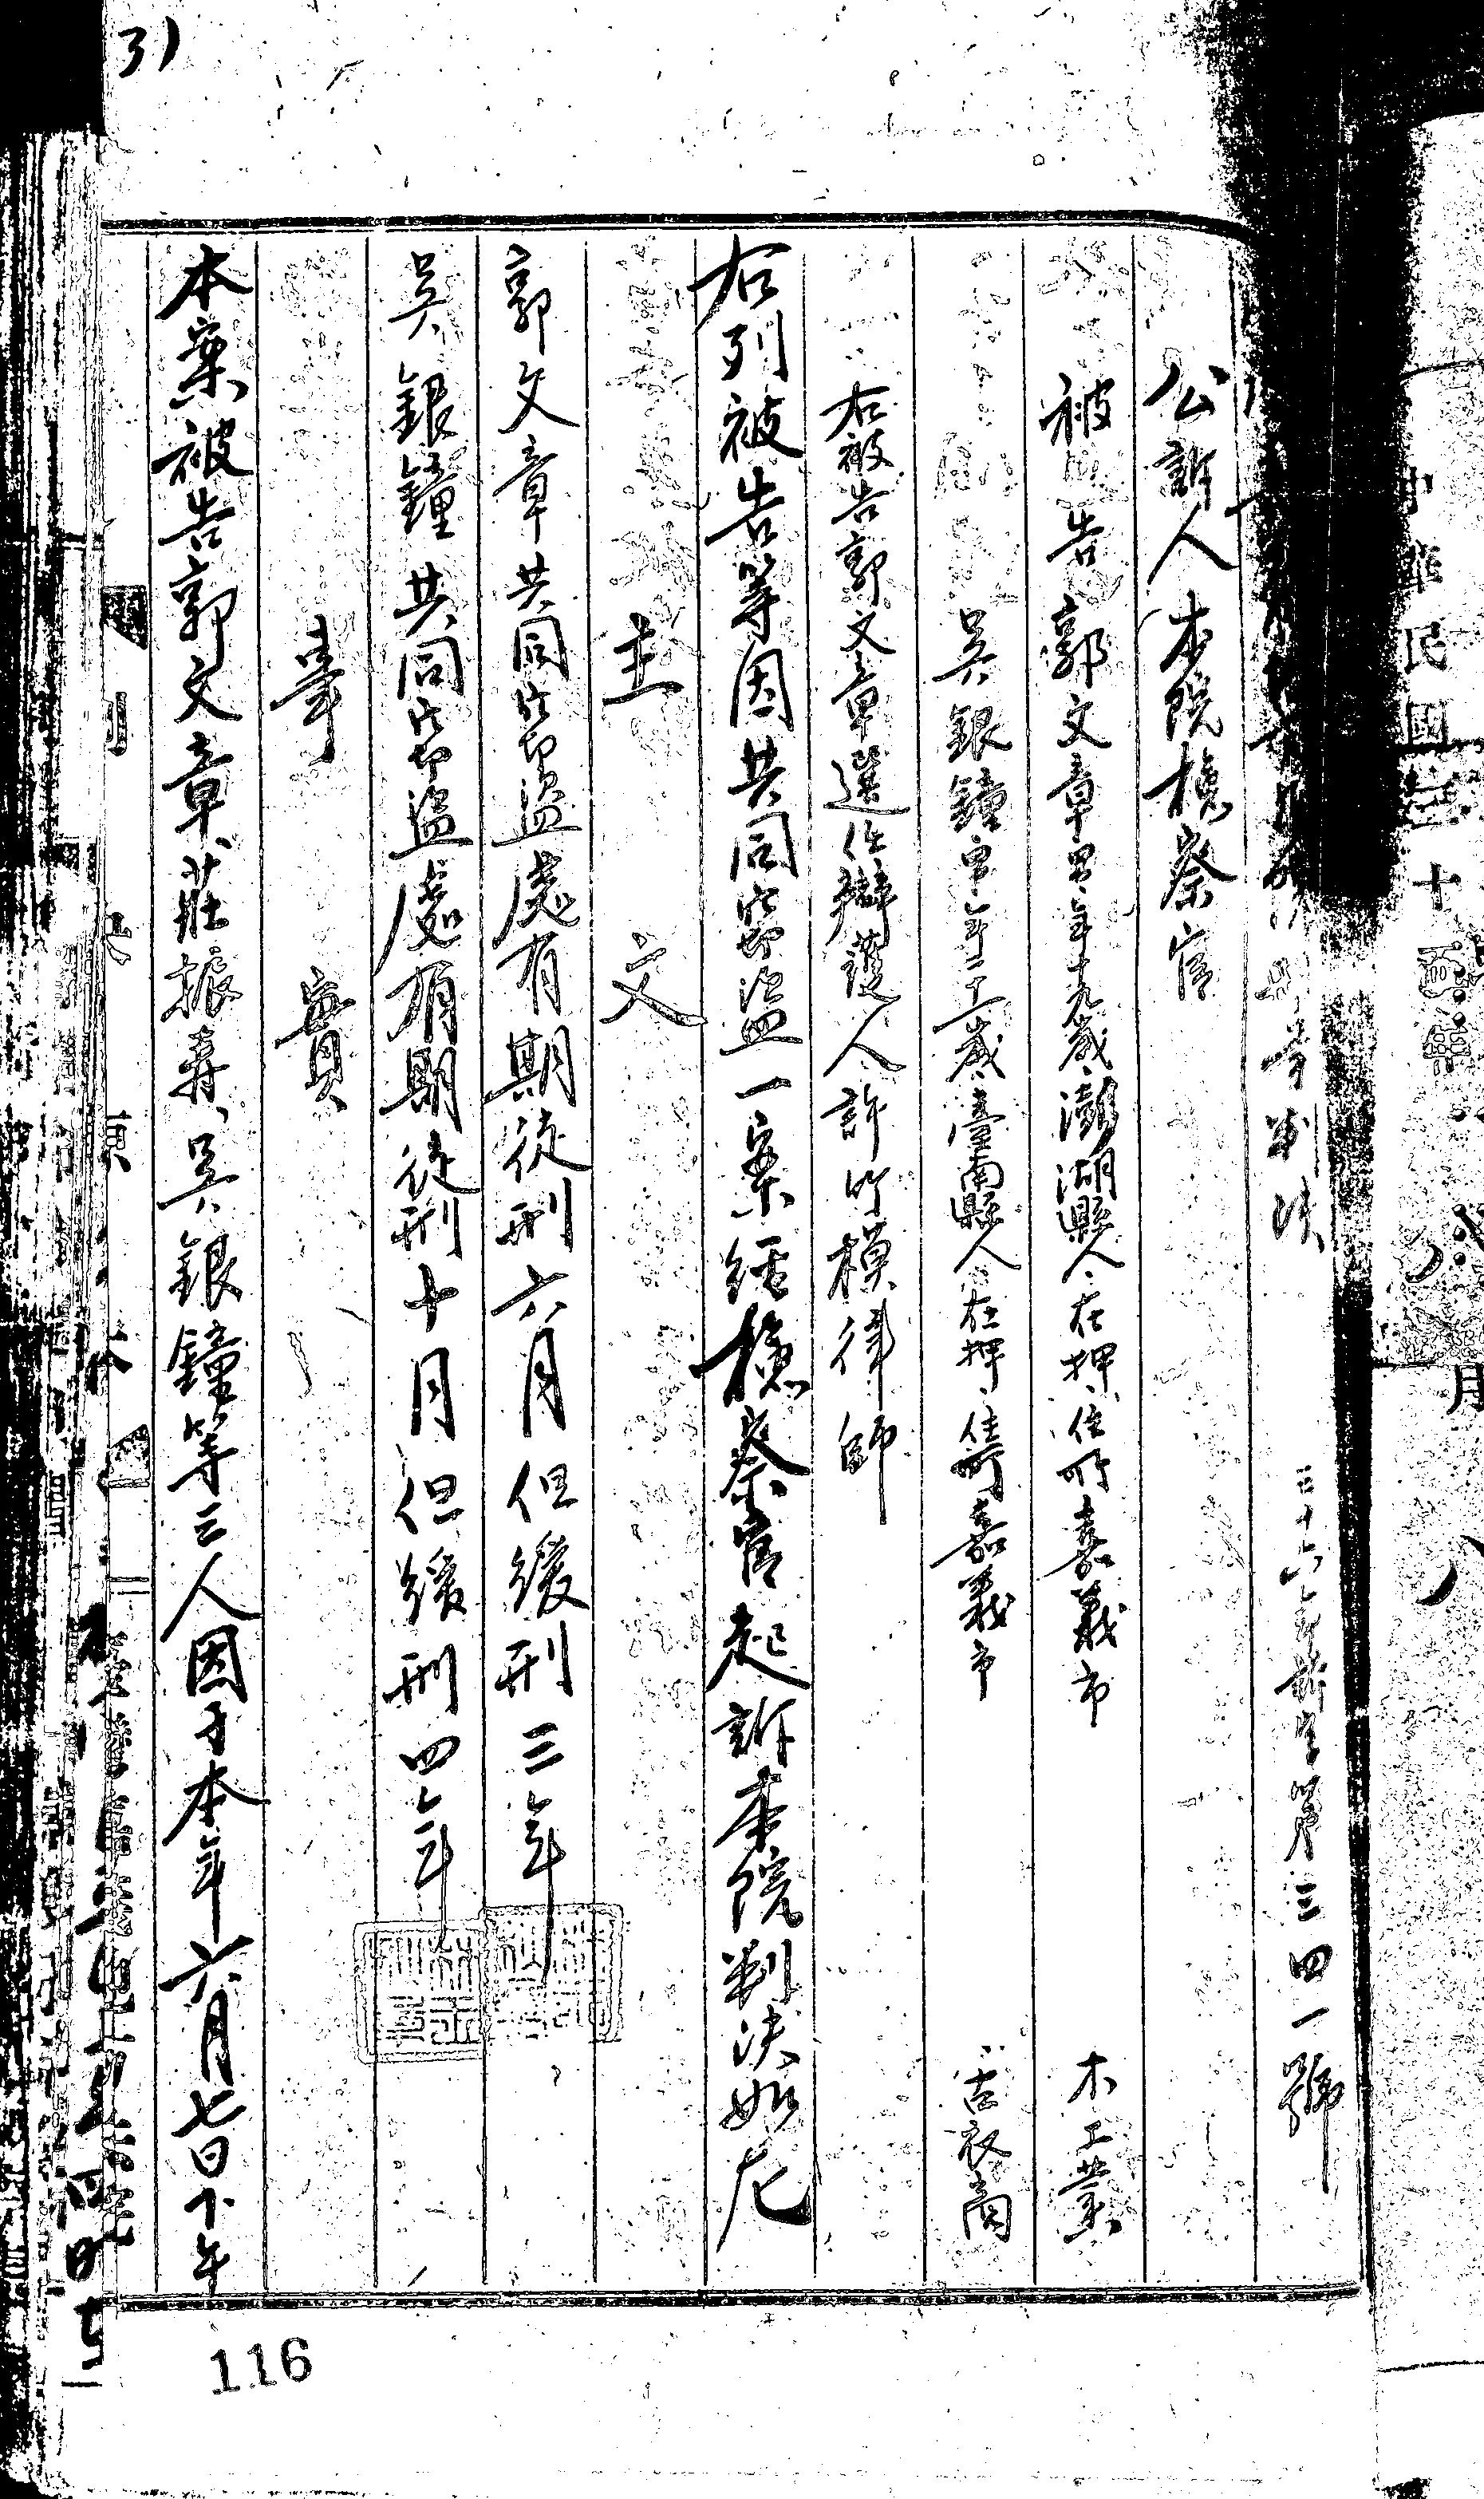 31
判決
三十六年訴字第三四一號
公訴人 本院檢察官
被告 郭文章 男、年十九歲、澎湖縣人、在押、住所嘉義市 木工業
吳銀鐘 男年二十歲臺南縣人在押、住所嘉義市 古衣商
右被告郭文章選任辯護人許竹模律師
右列被告等因共同竊盜一案經檢察官起訴本院判決如左
主 文
郭文章共同竊盜處有期徒刑六月但緩刑三年
吳銀鐘共同竊盜處有期徒刑十月但緩刑四年
事 實
本案被告郭文章、莊振壽、吳銀鐘等三人因于本年六月七日下午
116